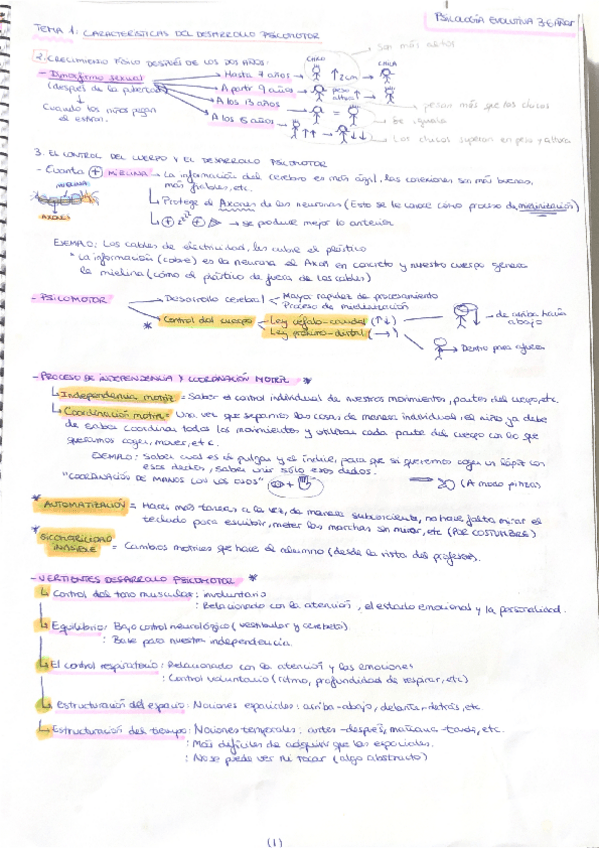 PSICOLOGÍA EVOLUTIVA
TEMA 1: CARACTERÍSTICAS DEL DESARROLLO PSICOMOTOR
son más
2. CRECIMIENTO FÍSICO DESPUÉS DE LOS DOS AÑOS:
CHICO CHICA
- Dimorfismo sexual Hasta 7 años ↑ 2cm
(después de la pubertad) A partir 9 años peso altura ↑
A los 13 años =
pesan más que los chicos
Cuando los niños pegan
el estirón.
Se iguala
A los 15 años ↑↑ ↓↓
Los chicos superan en peso y altura
3. EL CONTROL DEL CUERPO Y EL DESARROLLO PSICOMOTOR
- Cuanta + MIELINA → La información del cerebro es más ágil, las conexiones son más buenas,
más fiables, etc.
MIELINA
↳ Protege el Axones de las neuronas (Esto se le conoce cómo proceso de mielinización)
AXONES
→ se produce mejor lo anterior
EJEMPLO: Los cables de electricidad, les cubre el plástico
* La información (cobre) es la neurona el Axón en concreto y nuestro cuerpo genera
la mielina (cómo el plástico de fuera de los cables)
- PSICOMOTOR
Desarrollo cerebral Mayor rapidez de procesamiento
Proceso de mielinización
* Control del cuerpo Ley céfalo-caudal (↑↓) → de arriba hacia
abajo
Ley próximo-distal (→) → Dentro para afuera
- PROCESO DE INDEPENDENCIA Y COORDINACIÓN MOTRIZ *
↳ Independencia motriz = Saber el control individual de nuestros movimientos, partes del cuerpo, etc.
↳ Coordinación motriz = Una vez que separamos las cosas de manera individual, el niño ya debe
de saber coordinar todos los movimientos y utilizar cada parte del cuerpo con lo que
queramos coger, mover, etc.
EJEMPLO: Saber cual es el pulgar y el índice, para que si queremos coger un lápiz con
esos dedos, saber unir sólo esos dedos.
"COORDINACIÓN DE MANOS CON LOS OJOS" + (A modo pinza)
* AUTOMATIZACIÓN = Haces más tareas a la vez, de manera subconsciente, no hace falta mirar el
teclado para escribir, meter las marchas sin mirar, etc (POR COSTUMBRE)
*
INVISIBLE = Cambios motrices que hace el alumno (desde la vista del profesor).
- VERTIENTES DESARROLLO PSICOMOTOR *
↳ Control del tono muscular: involuntario
: Relacionado con la atención, el estado emocional y la personalidad.
↳ Equilibrio: Bajo control neurológico (vestibular y cerebelo)
: Base para nuestra independencia.
↳ El control respiratorio: Relacionado con la atención y las emociones
: Control voluntario (ritmo, profundidad de respirar, etc)
↳ Estructuración del espacio: Nociones espaciales: arriba-abajo, delante-detrás, etc
↳ Estructuración del tiempo: Nociones temporales: antes-después, mañana-tarde, etc.
: Más difíciles de adquirir que las espaciales.
: No se puede ver ni tocar (algo abstracto)
(1)